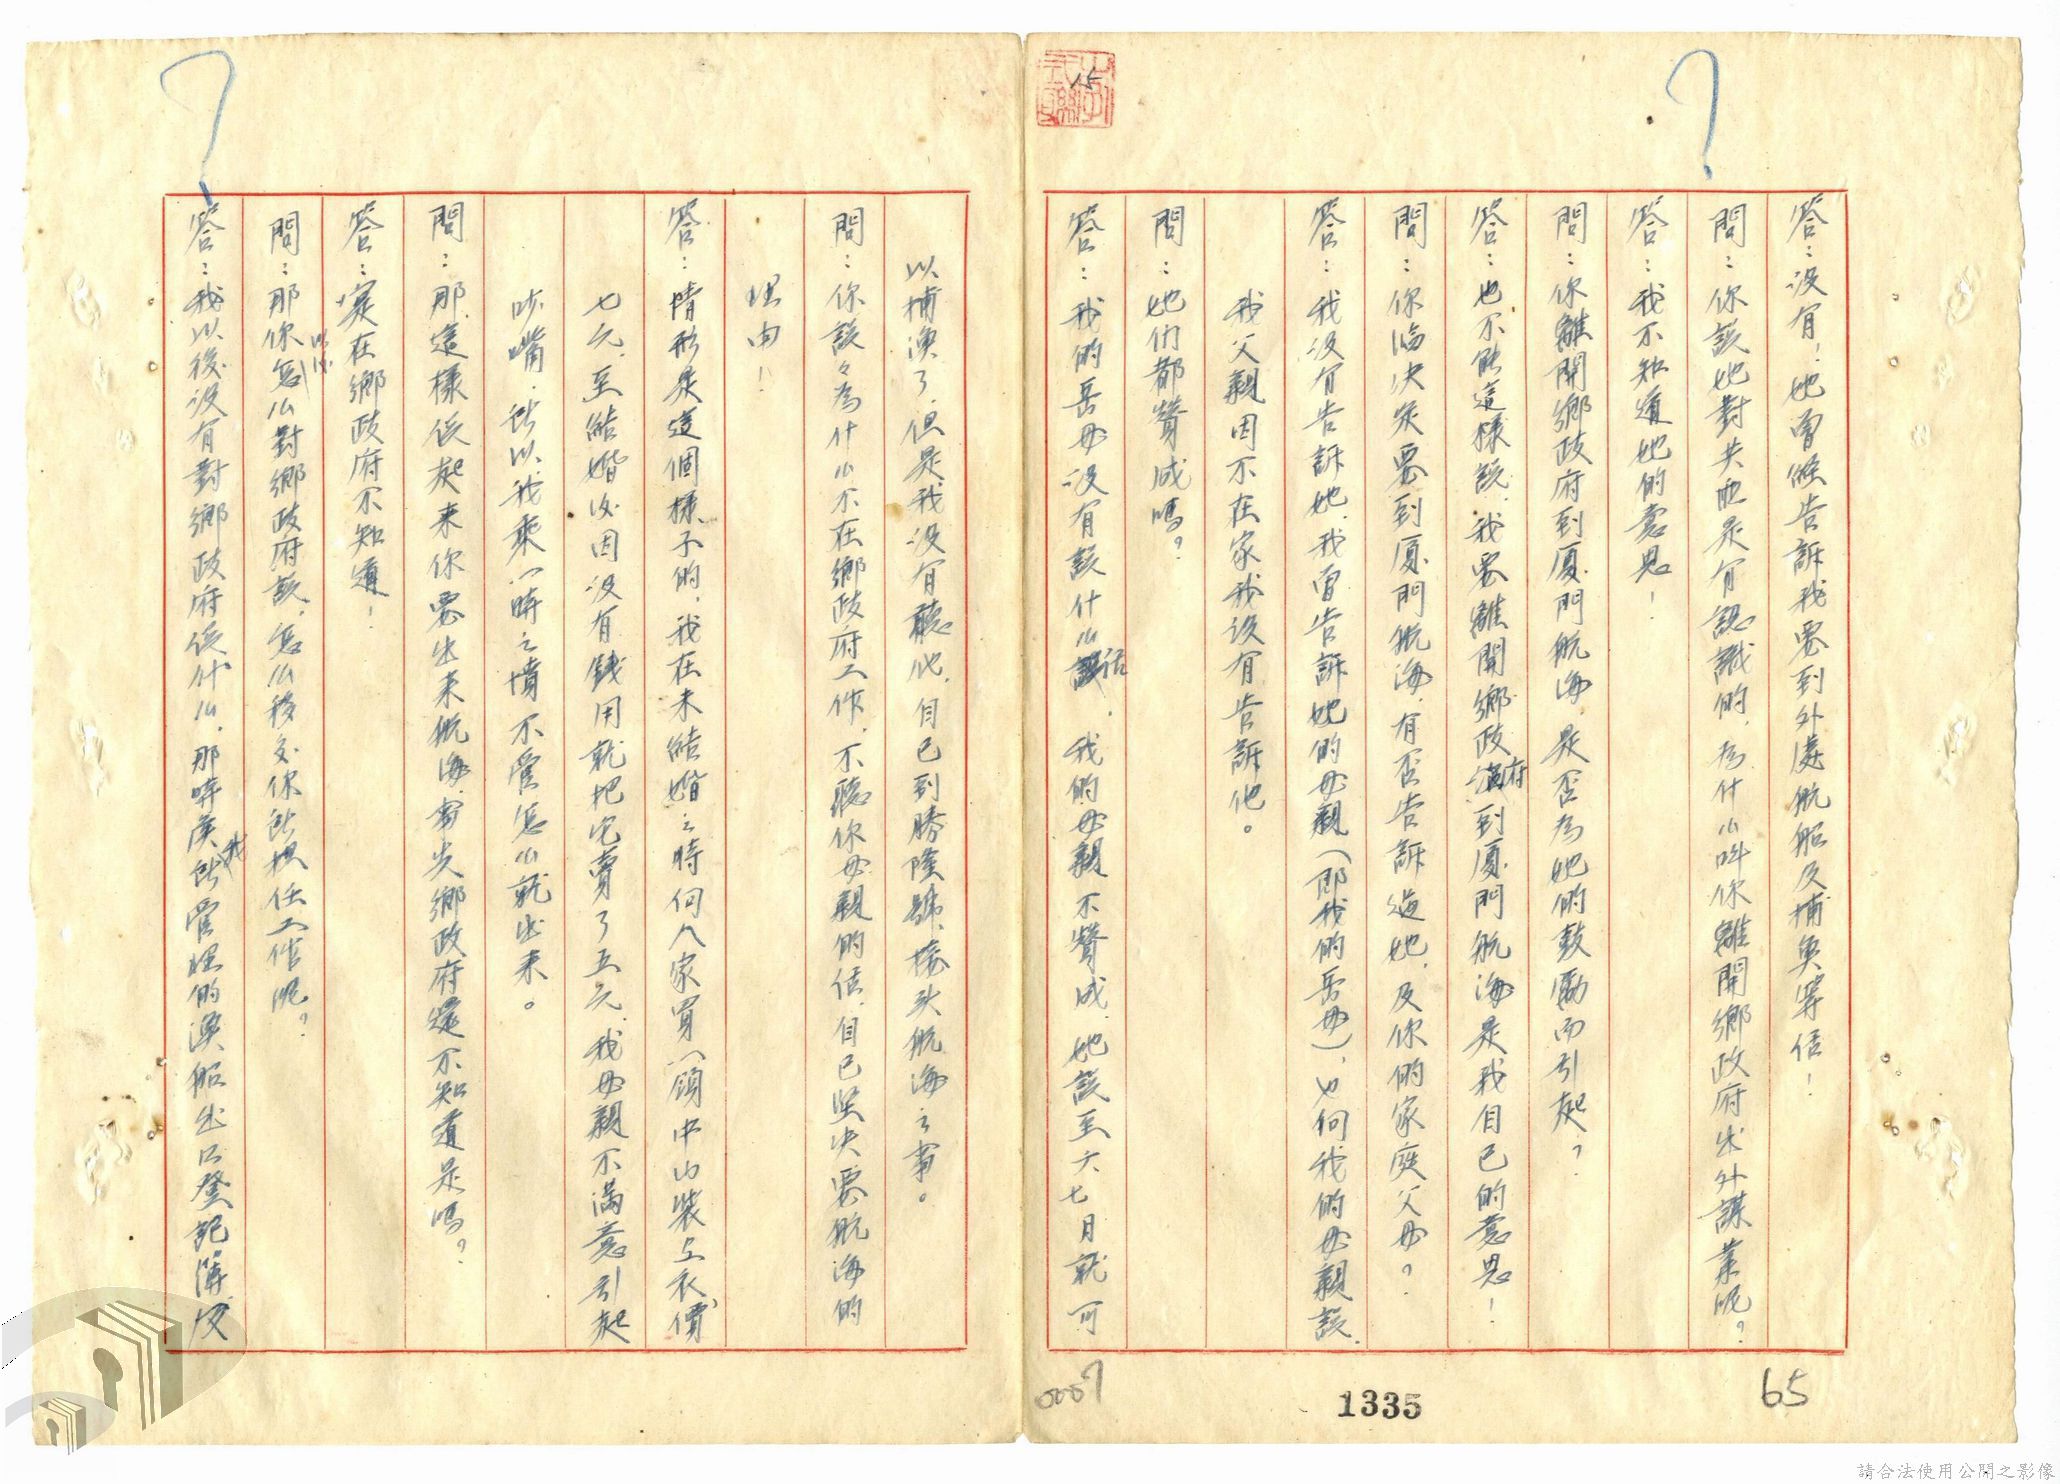 答：没有！她曾經告訴我要到外處航船及捕魚等話！
問：你說她對共匪是有認識的，為什么叫你離開鄉政府出外謀業呢？
答：我不知道她的意思！
問：你離開鄉政府到厦門航海，是否為她的鼓勵而引起？
答：也不能這樣說，我要離開鄉政府到厦門航海是我自己的意思！
問：你臨決定要到厦門航海，有否告訴過她，及你的家庭父母？
答：我没有告訴她，我曾告訴她的母親（即我的岳母），也向我的母親說，
我父親因不在家我没有告訴他。
問：她們都贊成嗎？
答：我的岳母没有說什么話，我的母親不贊成，她說至六七月就可
以捕漁了，但是我没有聽他，自己到勝隆號接头航海之事。
問：你說々為什么不在鄉政府工作，不聽你母親的話，自己坚决要航海的
理由！
答：情形是這個樣子的，我在未結婚之時向人家買一領中山裝上衣價
七元，至結婚後因没有錢用就把它賣了五元，我母親不滿意引起
吵嘴，所以我乘一時之憤不管怎么就出来。
問：那這樣説起来你要出来航海，事先鄉政府還不知道是嗎？
答：實在鄉政府不知道！
問：那你以後怎么對鄉政府說，怎么移交你所担任工作呢？
答：我以後没有對鄉政府説什么，那時候我所管理的漁船出口登記簿及
15
0007
1335
65
請合法使用公開之影像